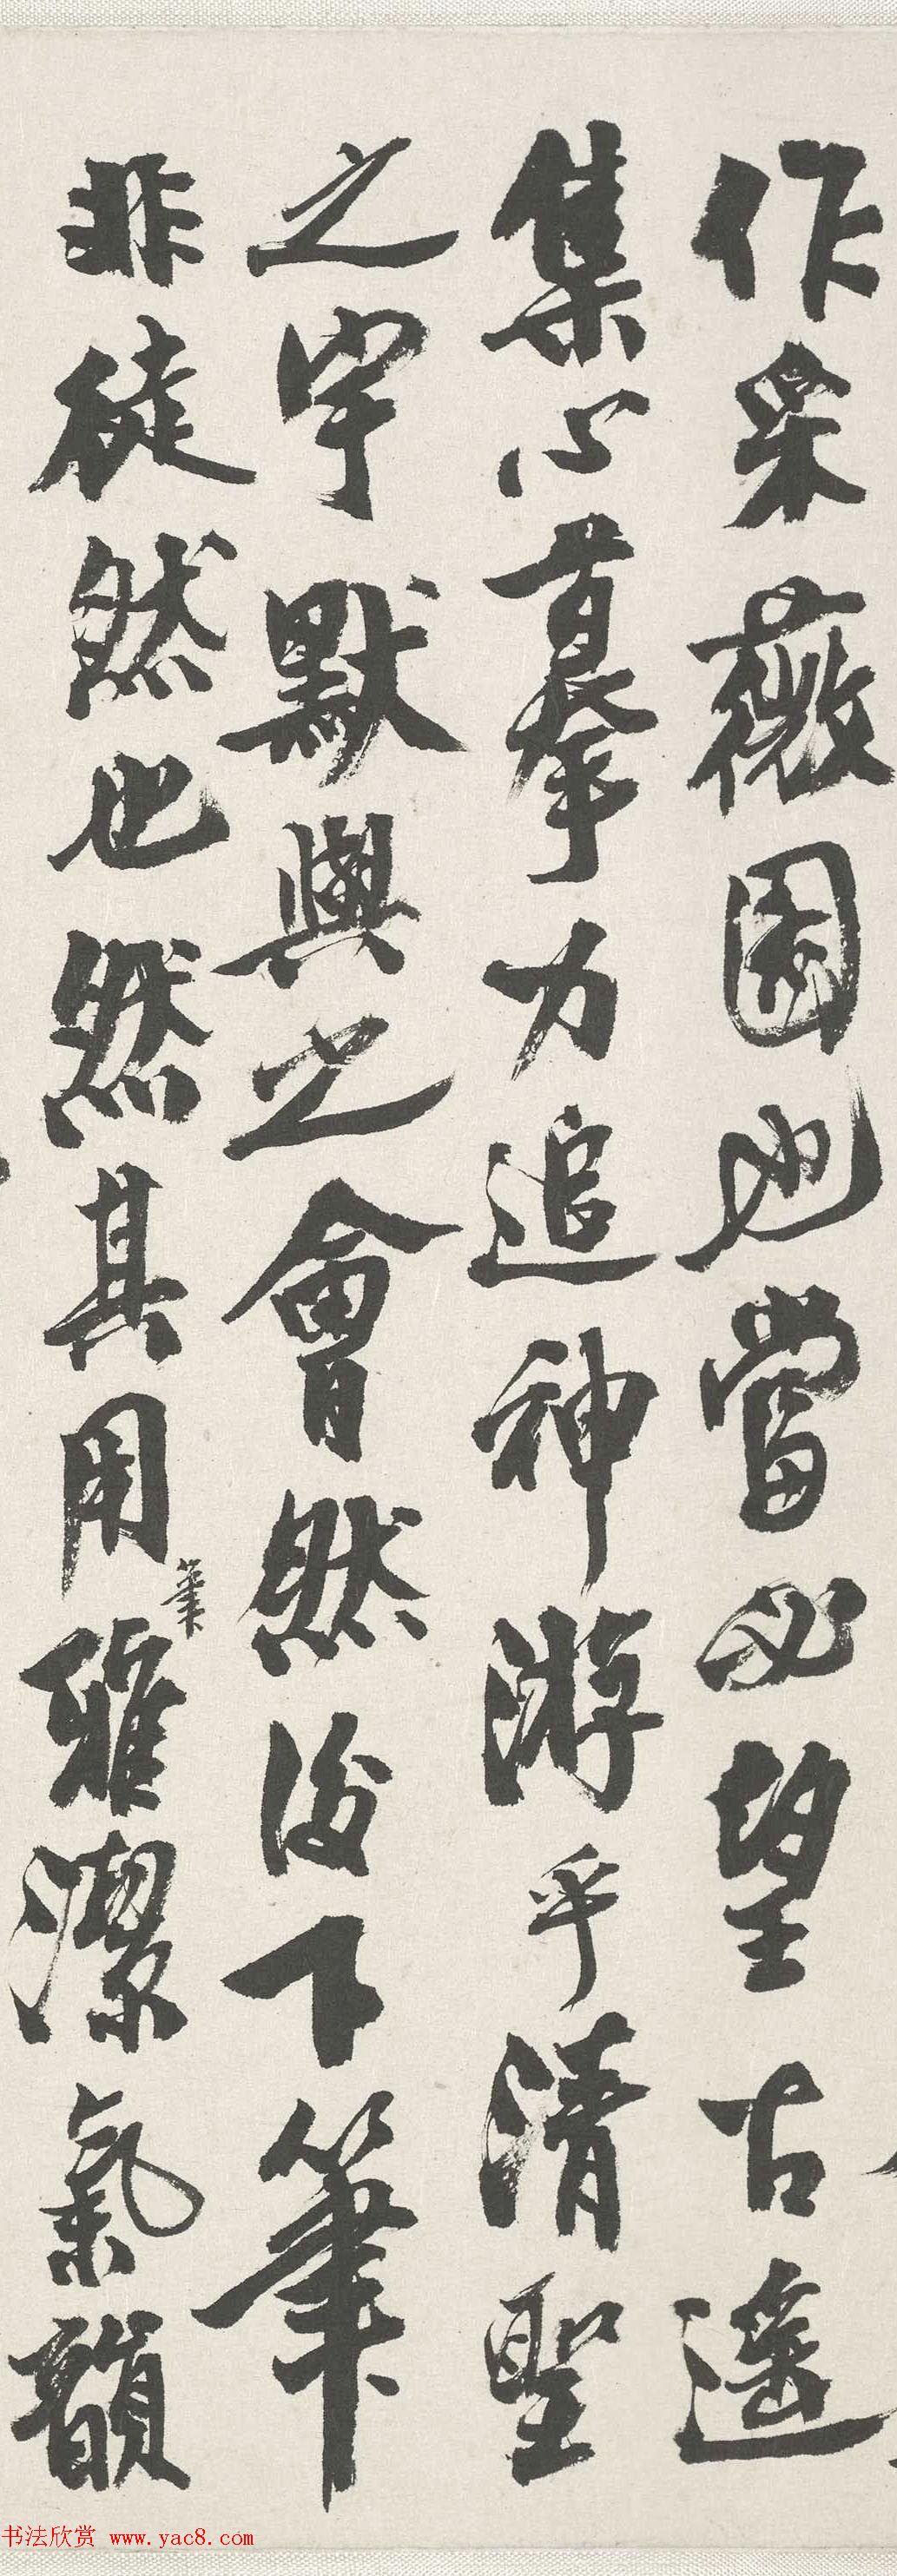 作采薇圖也當必望古遥
集心摹力追神游乎清聖
之宇默與之會然後下筆
非徒然也然其用筆雅潔氣韻
书法欣赏 www.yac8.com